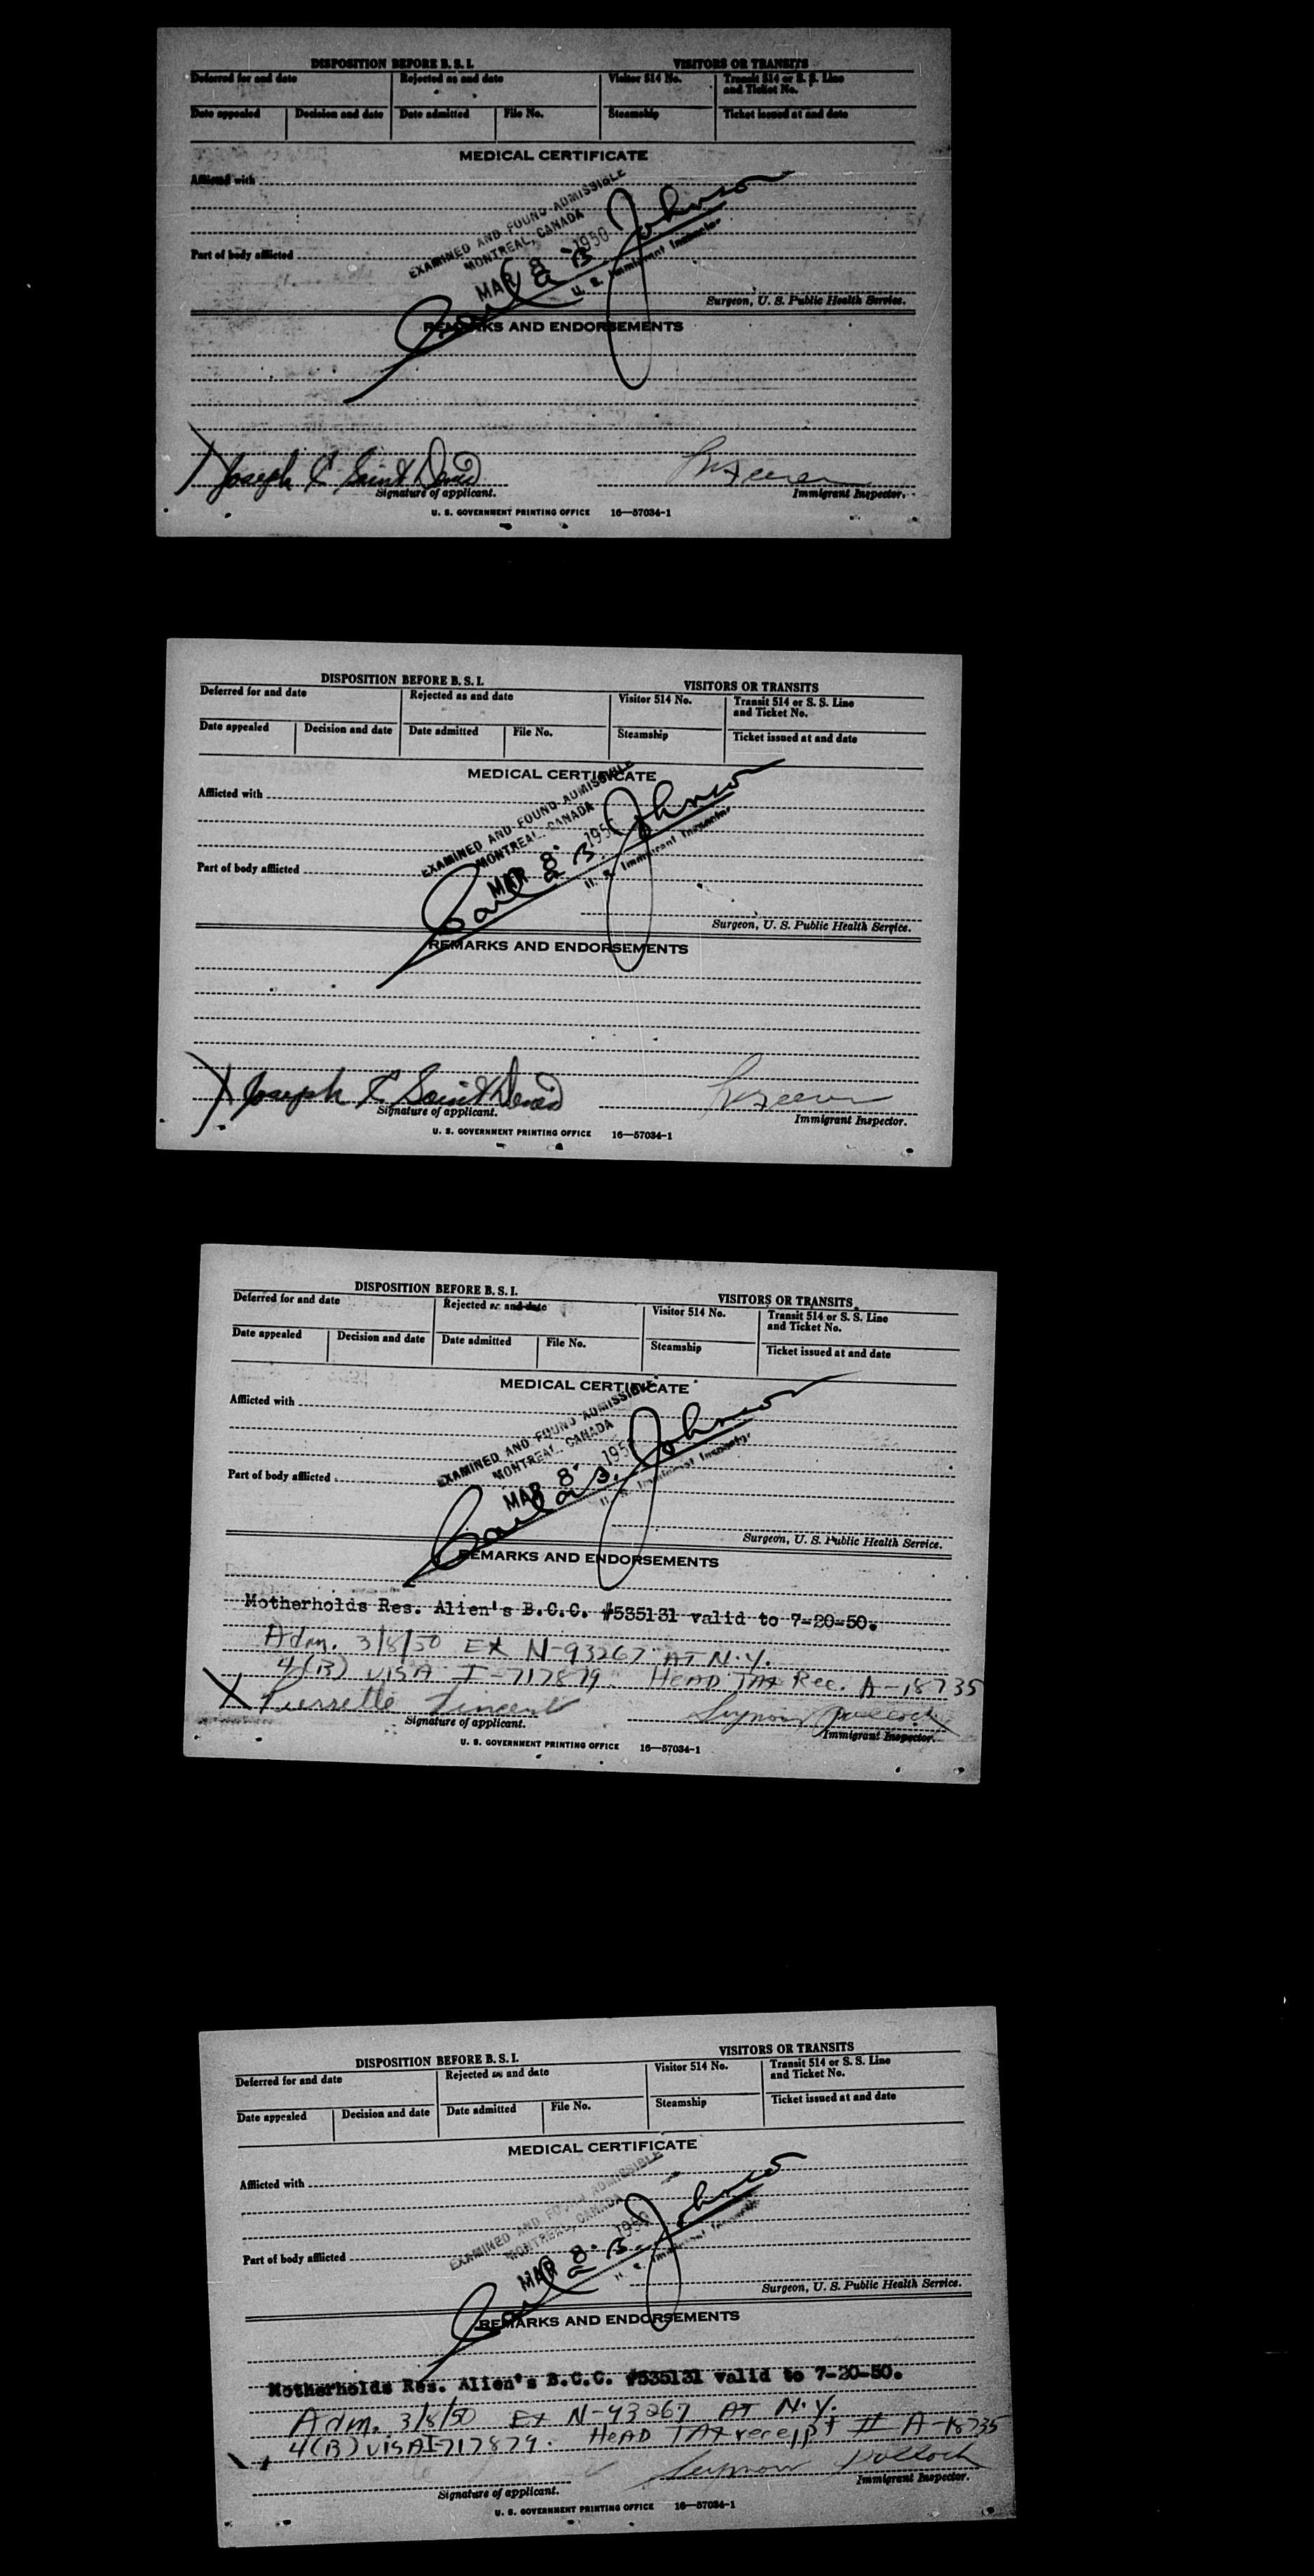 DISPOSITION BEFORE B. S. I.
VISITORS OR TRANSITS
Deferred for and date
Rejected as and date
Visitor 514 No.
Transit 514 or S. S. Line
and Ticket No.
Date appealed
Decision and date
Date admitted
File No.
Steamship
Ticket issued at and date
MEDICAL CERTIFICATE
Afflicted with
EXAMINED AND FOUND ADMISSIBLE
MONTREAL, CANADA
MAR 8 1950
Carl B. Johnson
U. S. Immigrant Inspector
Part of body afflicted
Surgeon, U. S. Public Health Service.
REMARKS AND ENDORSEMENTS
Joseph Saint Denis
Signature of applicant.
Immigrant Inspector.
U. S. GOVERNMENT PRINTING OFFICE 16—57034-1
DISPOSITION BEFORE B. S. I.
VISITORS OR TRANSITS
Deferred for and date
Rejected as and date
Visitor 514 No.
Transit 514 or S. S. Line
and Ticket No.
Date appealed
Decision and date
Date admitted
File No.
Steamship
Ticket issued at and date
MEDICAL CERTIFICATE
Afflicted with
EXAMINED AND FOUND ADMISSIBLE
MONTREAL, CANADA
MAR 8 195
Carl B. Johnson
U. S. Immigrant Inspector
Part of body afflicted
Surgeon, U. S. Public Health Service.
REMARKS AND ENDORSEMENTS
Joseph Saint Denis
Signature of applicant.
Immigrant Inspector.
U. S. GOVERNMENT PRINTING OFFICE 16—57034-1
DISPOSITION BEFORE B. S. I.
VISITORS OR TRANSITS
Deferred for and date
Rejected as and date
Visitor 514 No.
Transit 514 or S. S. Line
and Ticket No.
Date appealed
Decision and date
Date admitted
File No.
Steamship
Ticket issued at and date
MEDICAL CERTIFICATE
Afflicted with
EXAMINED AND FOUND ADMISSIBLE
MONTREAL, CANADA
MAR 8 195
Carl B. Johnson
U. S. Immigrant Inspector
Part of body afflicted
Surgeon, U. S. Public Health Service.
REMARKS AND ENDORSEMENTS
Motherholds Res. Alien's B.C.C. #535131 valid to 7-20-50.
Adm. 3/8/50 Ex N-93267 AT N.Y.
4(B) VISA I-717879. HEAD TAX Rec. A-18735
X Pierrette Vincent
Seymour Pollock
Signature of applicant.
Immigrant Inspector.
U. S. GOVERNMENT PRINTING OFFICE 16—57034-1
DISPOSITION BEFORE B. S. I.
VISITORS OR TRANSITS
Deferred for and date
Rejected as and date
Visitor 514 No.
Transit 514 or S. S. Line
and Ticket No.
Date appealed
Decision and date
Date admitted
File No.
Steamship
Ticket issued at and date
MEDICAL CERTIFICATE
Afflicted with
EXAMINED AND FOUND ADMISSIBLE
MONTREAL, CANADA
MAR 8 1950
Carl B. Johnson
U. S. Immigrant Inspector
Part of body afflicted
Surgeon, U. S. Public Health Service.
REMARKS AND ENDORSEMENTS
Motherholds Res. Alien's B.C.C. #535131 valid to 7-20-50.
Adm. 3/8/50 Ex N-93267 AT N.Y.
4(B) VISA I-717879. HEAD TAX receipt # A-18735
Seymour Pollock
Signature of applicant.
Immigrant Inspector.
U. S. GOVERNMENT PRINTING OFFICE 16—57034-1